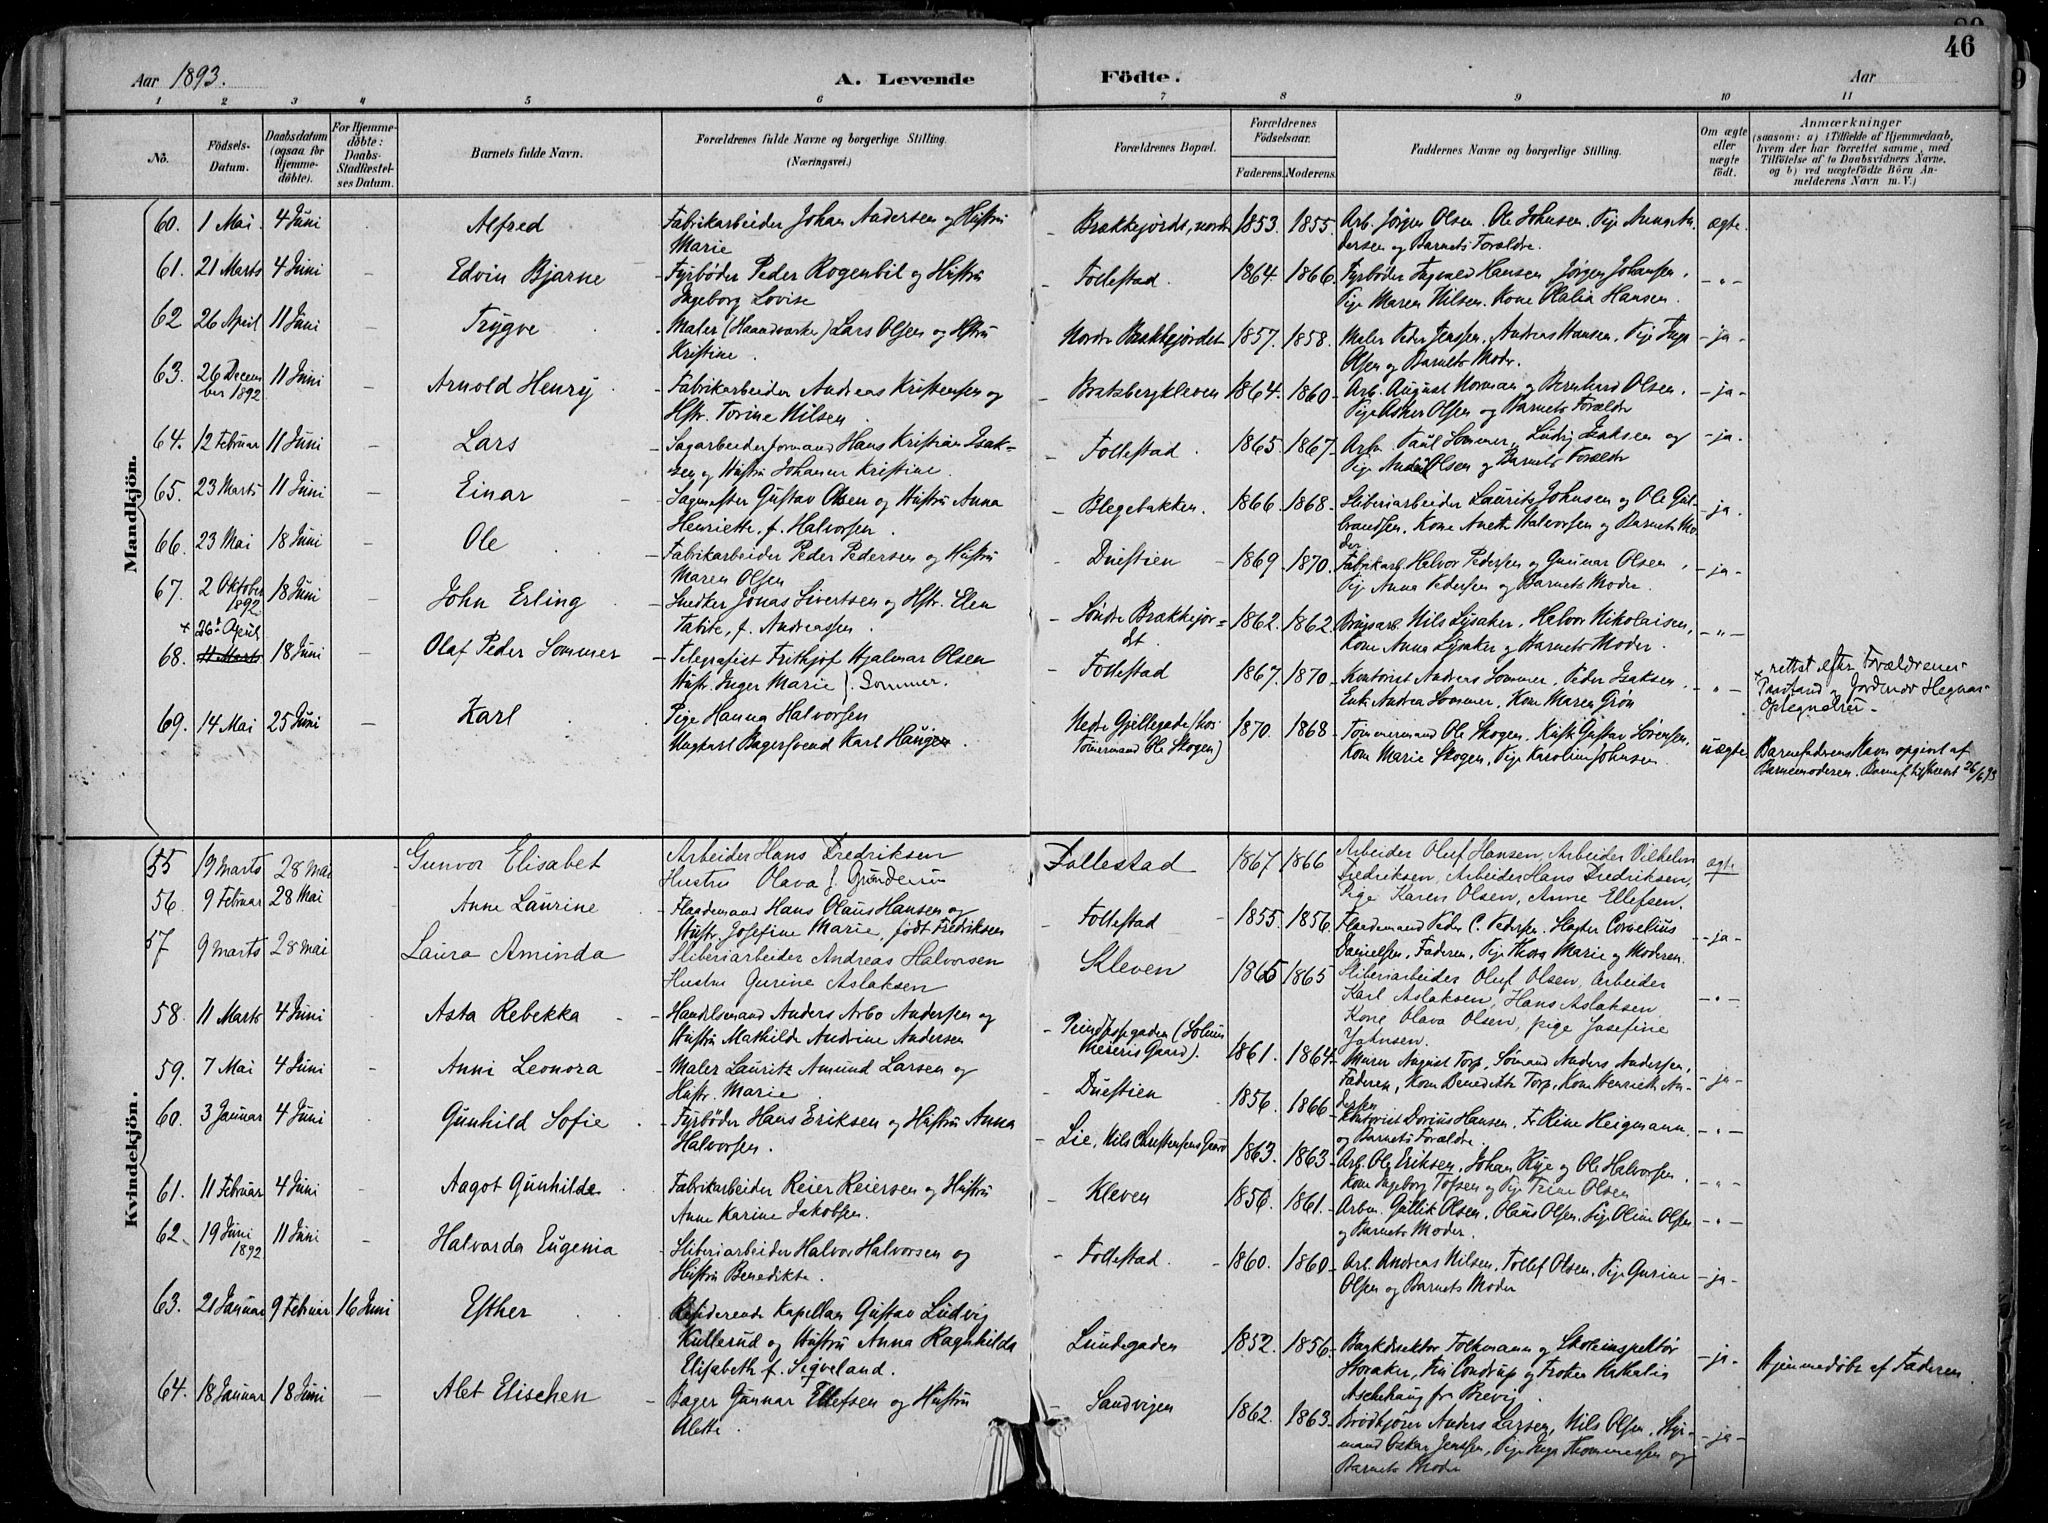 46
Aar 1893. A. Levende Födte. Aar
1 2 3 4 5 6 7 8 9 10 11
No. Födsels-Datum. Daabsdatum (ogsaa for Hjemme-döbte). For Hjemme-döbte: Daabs-Stadfæstel-ses Datum. Barnets fulde Navn. Forældrenes fulde Navne og borgerlige Stilling. (Næringsvei.) Forældrenes Bopæl. Forældrenes Födselsaar. Faderens. Moderens. Faddernes Navne og borgerlige Stilling. Om ægte eller uægte födt. Anmærkninger (saasom: a) i Tilfælde af Hjemmedaab, hvem der har forrettet samme, med Tilföielse af to Daabsvidners Navne, og b) ved uægtefödte Börn An-melderens Navn m. V.)
Mandkjön.
60. 1 Mai. 4 Juni – Alfred Fabrikarbeider Johan Andersen og Hustru – Brækkejordt, nordre 1853. 1855. Arb. Jørgen Olsen. Ole Johnsen, Pige Anna An- ægte.
Marie dersen og Barnets Forældre.
61. 21 Marts 4 Juni – Edvin Bjarne – Fyrbøder Peder Rogenbil og Hustru – Follestad. 1864. 1866. Fyrbøder Hansen, Jørgen Johansen, – " –
Ingeborg Lovise Pige Maren Nilsen. Kone Olalia Hansen.
62 26 April 11 Juni – Trygve – Maler (Haandværker) Lars Olsen og Hstru Nordre Brækkejordet 1857. 1858. Maler Peder Jenssen, Andreas Hansen, Pige Inga – ja –
Kristine. Olsen og Barnets Moder.
63. 26 Decem 11 Juni Arnold Henry – Fabrikarbeider Andreas Kristensen og – Bratsbergkleven 1864. 1860 – Arb. August Norman og Bernhard Olsen, – ja –
ber 1892 Hstr. Torine Nilsen. Pige Olsen og Barnets Forældre
64. 12 Februar 11 Juni – Lars – Sagarbeiderformand Hans Kristian Isak- – Follestad. 1865 1867 – Arb. Paul Sommer, Ludvig Isaksen og – ja.
sen og Hustru Johanne Kristine. Pige Olsen og Barnets Forældre
65. 23 Marts 11 Juni – Einar – Sagmester Gustav Olsen og Hustru Anna – Blegebakken. 1866 1868 – Sliberiarbeider Laurits Johnsen og Ole Gul- – ja.
Henriette, f. Halvorsen. brandsen. Kone Anette Halvorsen og Barnets Mo-
66. 23 Mai 18 Juni – Ole – Fabrikarbeider Peder Pedersen og Hustru – Duestien 1869 1870. der
Maren Olsen Fabrikarb. Halvor Pedersen og Gunnar Olsen, – ja –
67. 2 Oktober 18 Juni John Erling – Snedker Jonas Sivertsen og Hstr. Elen Pige Anna Pedersen og Barnets Moder.
1892 Tabite, f. Andreassen. – Søndre Brækkejor- 1862. 1862. Brugsarb. Nils Lysaker, Halvor Nikolaisen, – " –
+ 26 April det Kone Anna Lysaker og Barnets Moder.
68. 11 Marts 18 Juni Olaf Peder Sommer – Telegrafist Frithjof Hjalmar Olsen – Follestad 1867. 1870 – Kontorist Andreas Sommer, Peder Isaksen, – " – + rettet efter Forældrenes
Hustr. Inger Marie f. Sommer. Enke Andrea Sommer, Kone Maren Grøn Paastand og Jordemor Hegnas
Optegnelser –
69. 14 Mai 25 Juni – Karl Pige Hanna Halvorsen Nedre Gjellegade (hos 1870. 1868 – Tømmermand Ole Skogen, Kusk Gustav Sørensen, uægte Barnefaderens Navn opgivet af
Ungkarl Bagersvend Karl Haugen. Tømermand Ole Skogen) Kone Marie Skogen, Pige Karoline Johnsen. Barnemoderen. 26/6 93
Kvindekjön.
55 19 Marts 28 Mai Gunvor Elisabet Arbeider Hans Fredriksen Follestad 1867 1866 Arbeider Oluf Hansen, Arbeider Vilhelm ægte
Hustru Olava f. Gundersen Fredriksen, Arbeider Hans Fredriksen,
Pige Karen Olsen, Anne Ellefsen.
56. 9 Februar 28 Mai Anne Laurine – Flaademand Hans Olaus Hansen og – Follestad – 1855. 1856. Flaademand Peder C. Pedersen. Slagter Cornelius – ja –
Hustr. Josefine Marie, født Fredriksen Danielsen, Faderen, Pige Thora Marie og Moderen.
57 9 Marts 28 Mai Laura Aminda Sliberiarbeider Andreas Halvorsen Kleven 1865 1865 Sliberiarbeider Oluf Olsen, Arbeider – " –
Hustru Gurine Aslaksen Karl Aslaksen, Hans Aslaksen
Kone Olava Olsen, pige Josefine
Johnsen.
58. 11 Marts 4 Juni Asta Rebekka – – Handelsmand Anders Arbo Andersen og – (Solum 1861. 1864 – Murer August Torp, Sømand Anders Andersen, – ja –
Hustru Mathilde Andrine Andersen Gaard). Faderen, Kone Benedikte Torp, Kone Henriette An-
dersen
59. 7 Mai 4 Juni – Anni Leonora – Maler Lauritz Amund Larsen og – Duestien 1856. 1866 – Kontorist Dorius Hansen, Fr Rine Heigmann, – " –
Hustr. Marie. og Barnets Forældre.
60. 3 Januar 4 Juni Gunhild Sofie – Fyrbøder Hans Eriksen og Hustru Anna – Lie, Nils Christensens Gaard 1863. 1863 – Arb. Ole Eriksen, Johan Rye og Ole Halvorsen, – " –
Halvorsen. Kone Ingeborg Tofsen og Pige Trine Olsen
61. 11 Februar 4 Juni Aagot Gunhilde – Fabrikarbeider Reier Reiersen og Hustru – Kleven 1856. 1861. – Arbm. Gullik Olsen, Olaus Olsen, Pige Oline Olsen – " –
Anne Karine Jakobsen. og Barnets Moder.
62. 19 Juni 11 Juni – Halvarda Eugenia – Sliberiarbeider Halvor Halvorsen og – Follestad. – 1860. 1860 – Arb. Andreas Nilsen, Tollef Olsen, Pige Gurine – ja –
1892 Hustru Benedikte. Olsen og Barnets Moder
63. 21 Januar 9 Februar 16 Juni Esther Residerende Kapellan Gustav Ludvig Lundegaden 1852. 1856. Bankdirektør Folkmann og Skoleinspektør – ja – Hjemmedøbt af Faderen.
Kullerud og Hustru Anna Ragnhilda Horaker, Fru Condrup og Frøken Nathalia
Elisabeth f. Sigveland. Aschehoug fra Brevig.
64. 18 Januar 18 Juni – Alet Elischen – Bager Gunnar Ellefsen og Hustru – Sandvigen 1862. 1863. Brødkjører Anders Larsen, Nils Olsen, Styr- – ja –
Alette. mand Oskar Jenssen, Pige Inga Thommessen og
Barnets Moder